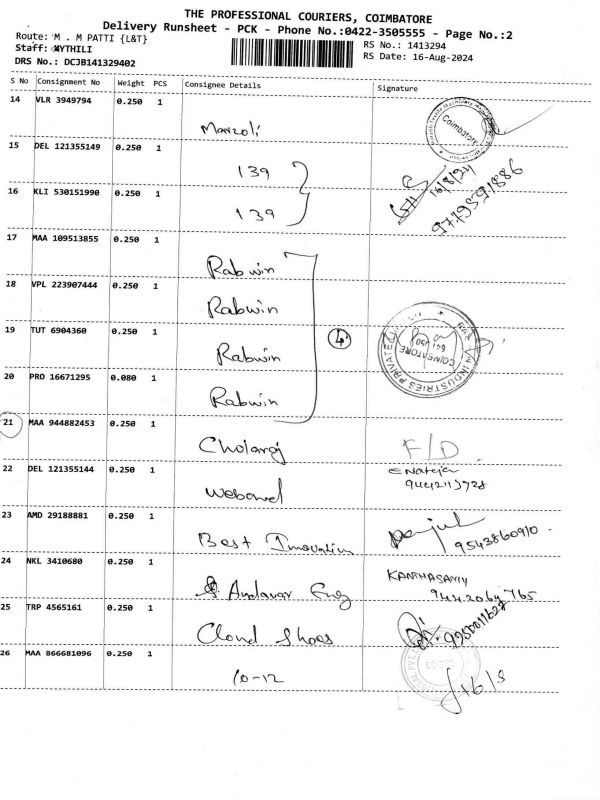 THE PROFESSIONAL COURIERS, COIMBATORE
Delivery Runsheet - PCK - Phone No.:0422-3505555 - Page No.:2
Route: M . M PATTI {L&T}
RS No.: 1413294
Staff: MYTHILI
RS Date: 16-Aug-2024
DRS No.: DCJB141329402
S No Consignment No Weight PCS Consignee Details Signature
14 VLR 3949794 0.250 1
Coimbatore
15 DEL 121355149 0.250 1
139
16/8/24
16 KLI 530151990 0.250 1
139
17 MAA 109513855 0.250 1
Rabwin
18 VPL 223907444 0.250 1
Rabwin
19 TUT 6904360 0.250 1
Rabwin
4
COIMBATORE
INDUSTRIES PRIVATE
20 PRO 16671295 0.080 1
Rabwin
21 MAA 944882453 0.250 1
Cholaraj
F/D
22 DEL 121355144 0.250 1
23 AMD 29188881 0.250 1
Best Innovation
9543860910
24 NKL 3410680 0.250 1
Andavar Eng
KANTHASAMY
9442064765
25 TRP 4565161 0.250 1
Cloud Shoes
26 MAA 866681096 0.250 1
10-12